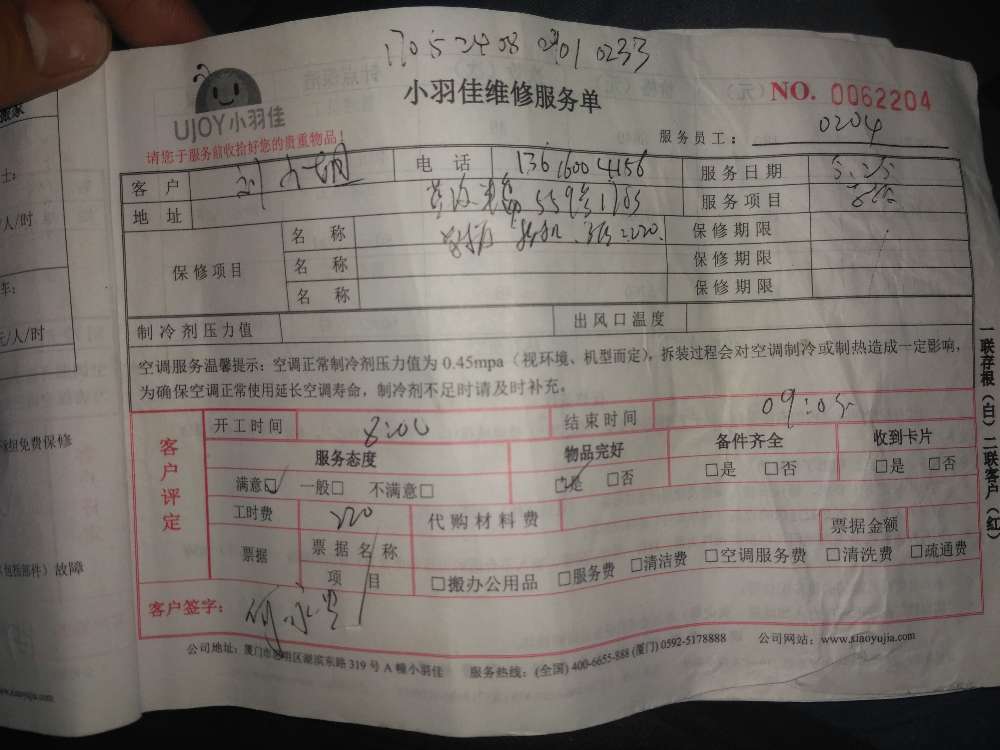 17052408 2901 0233
UJOY小羽佳
小羽佳维修服务单
(元)
NO. 0062204
请您于服务前收拾好您的贵重物品！
服务员工： 0204
客 户
电 话 13616004156
服务日期 5.25
地 址 559号1705
服务项目
保修项目
名 称
保修期限
名 称
保修期限
名 称
保修期限
制冷剂压力值
出风口温度
空调服务温馨提示：空调正常制冷剂压力值为 0.45mpa（视环境、机型而定），拆装过程会对空调制冷或制热造成一定影响，
为确保空调正常使用延长空调寿命，制冷剂不足时请及时补充。
客户评定
开工时间 8:00
结束时间 09:05
服务态度
物品完好
备件齐全
收到卡片
满意□ 一般□ 不满意□
□是 □否
□是 □否
□是 □否
工时费 220
代购材料费
票据金额
票据
票据名称
项 目
□搬办公用品 □服务费 □清洁费 □空调服务费 □清洗费 □疏通费
客户签字：
公司地址：厦门市思明区湖滨东路 319 号 A 幢小羽佳 服务热线：(全国) 400-6655-888 (厦门) 0592-5178888 公司网站：www.xiaoyujia.com
一联存根（白）二联客户（红）
人/时
车：
元/人/时
组免费保修
包括部件）故障